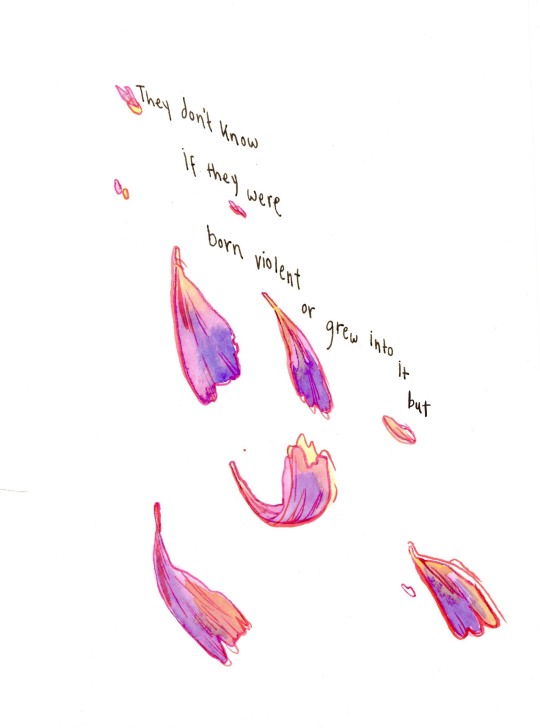 They don't know
if they were
born violent
or grew into
it
but